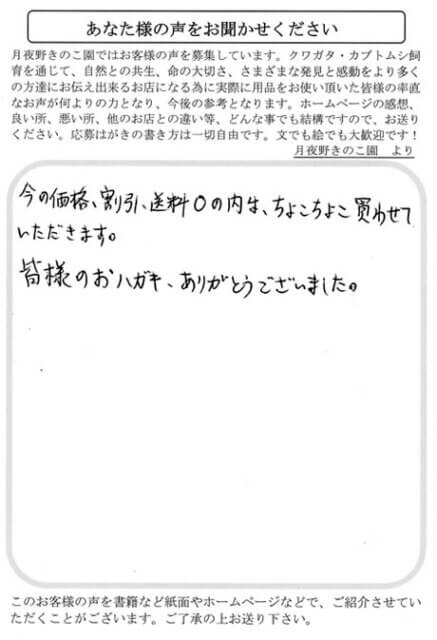 あなた様の声をお聞かせください
月夜野きのこ園ではお客様の声を募集しています。クワガタ・カブトムシ飼
育を通じて、自然との共生、命の大切さ、さまざまな発見と感動をより多く
の方達にお伝え出来るお店になる為に実際に用品をお使い頂いた皆様の率直
なお声が何よりの力となり、今後の参考となります。ホームページの感想、
良い所、悪い所、他のお店との違い等、どんな事でも結構ですので、お送り
ください。応募はがきの書き方は一切自由です。文でも絵でも大歓迎です！
月夜野きのこ園　より
今の価格、割引、送料０の内は、ちょこちょこ買わせて
いただきます。
皆様のおハガキ、ありがとうございました。
このお客様の声を書籍など紙面やホームページなどで、ご紹介させてい
ただくことがございます。ご了承の上お送り下さい。